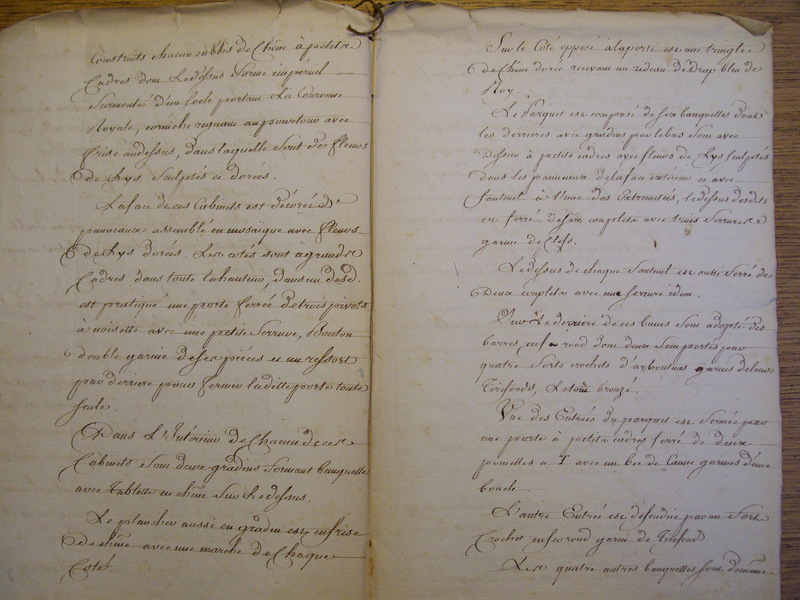 Construits chacun en bois de Chêne à petits
Cadres dont Le dessus forme imperial
Surmonté d'un socle portant La Couronne
Royale, corniche regnant au pourtour avec
frise audessus, dans laquelle sont des fleurs
de Lys Sculptés et dorées.
La face de ces Cabinets est décorée de
panneaux assemblé en mosaique avec fleurs
de Lys dorés. Les cotés sont à grands
Cadres dans toute la hauteur, dans un desd.
est pratiqué une porte ferrée de trois pivots
à noisette avec une petite Serrure, Bouton
double garnie de ses pièces et un ressort
par derriere pour fermer ladite porte toute
seule.
Dans L'Interieur de Chacun de ces
Cabinets sont deux gradins formant banquette
avec Tablette en chêne Sur Le dessus.
Le plancher aussi en gradin est en frise
de chêne avec une marche de Chaque
Coté.
Sur le Coté opposé à la porte est une tringle
de Chêne dorée recevant un rideau de drap bleu de
Roy.
Le Parquet est composé de six banquettes dont
les derrieres avec gradins par le bas sont avec
Dessus à petits cadres avec fleurs de Lys sculptés
dans les panneaux de la face exterieur et avec
fauteuil à l'une des Extremités, le dessus desdits
est ferré de six couplets avec trois Serrures
garnie de Clefs.
Le dessus de chaque fauteuil est aussi ferré de
Deux couplets avec une serrure idem.
Sur Le derriere de ces bancs sont adopté des
barres en fer rond dont deux sont portés par
quatre forts crochets d'arboutans garnis de leurs
Tirefonds, Le tout bronzé.
Une des Entrées du parquet est fermée par
une porte à petits cadres ferré de deux
paumelles a T avec un bec de Canne garnie d'une
boucle.
L'autre Entrée est defendue par un fort
Crochet en fer rond garni de Tirefond
Les quatre autres banquettes sont de même